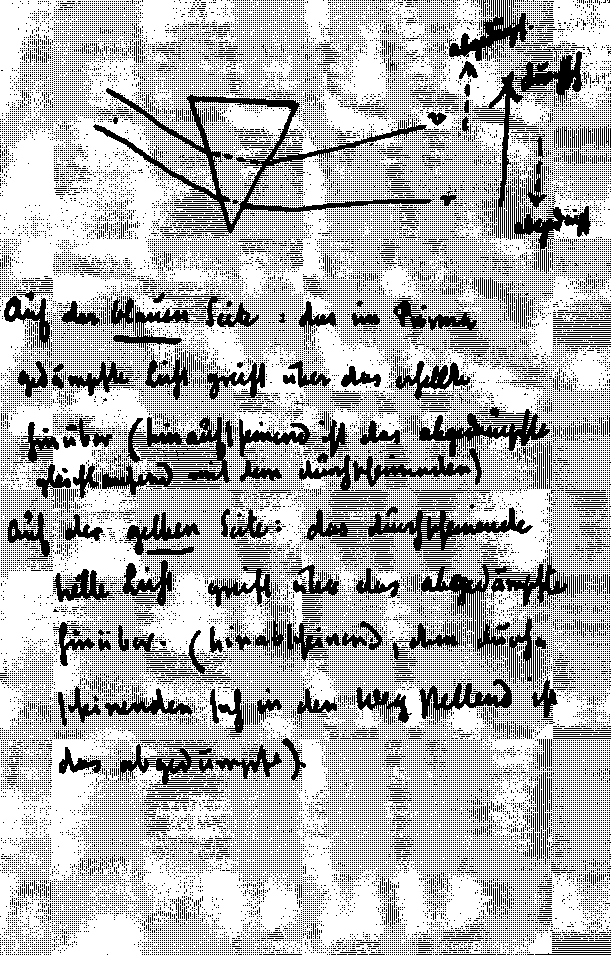 abgedämpft.
dämpft
abgedämpft
Auf der blauen Seite : das im Prisma
gedämpfte Licht greift über das erhellte
hinüber (hinaufscheinend ist das abgedämpfte
gleichlaufend mit dem durchscheinenden)
Auf der gelben Seite: das durchscheinende
helle Licht greift über das abgedämpfte
hinüber. (hinabscheinend, dem durch-
scheinenden sich in den Weg stellend ist
das abgedämpfte).